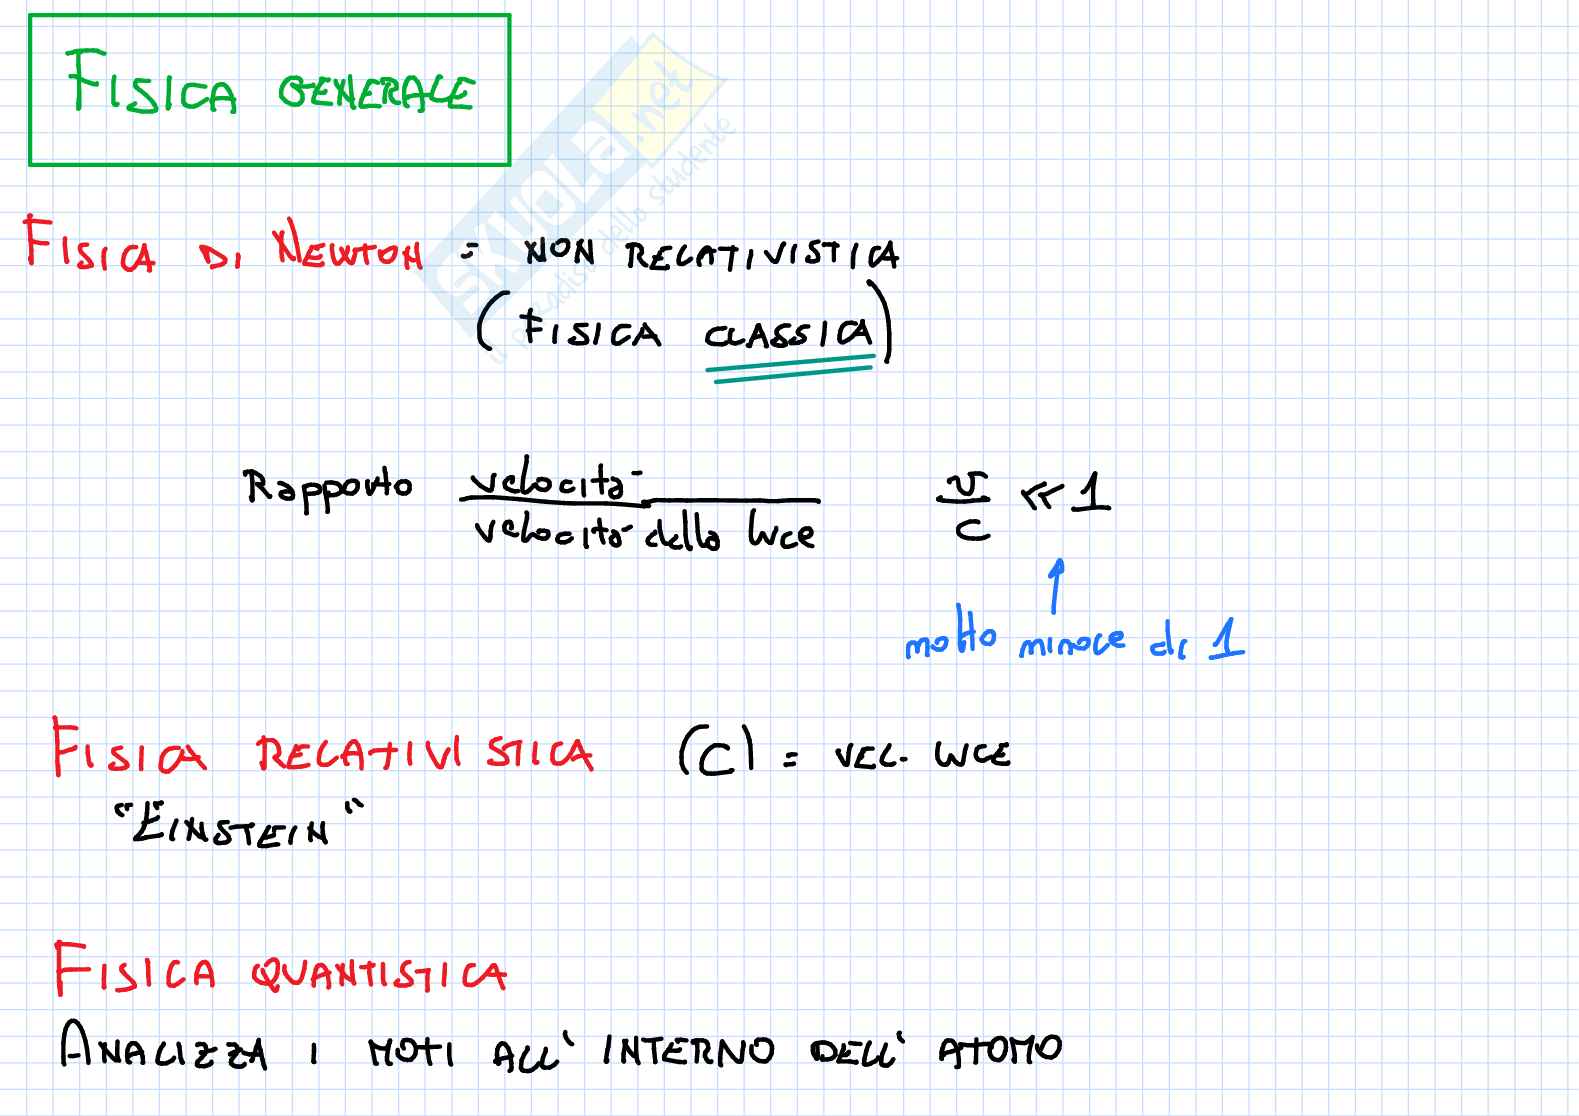 FISICA GENERALE
SKUOLA.net
il paradiso dello studente
FISICA DI NEWTON = NON RELATIVISTICA
(FISICA CLASSICA)
Rapporto velocità / velocità della luce v/c << 1
molto minore di 1
FISICA RELATIVISTICA (C) = VEL. LUCE
"EINSTEIN"
FISICA QUANTISTICA
ANALIZZA I MOTI ALL' INTERNO DELL' ATOMO